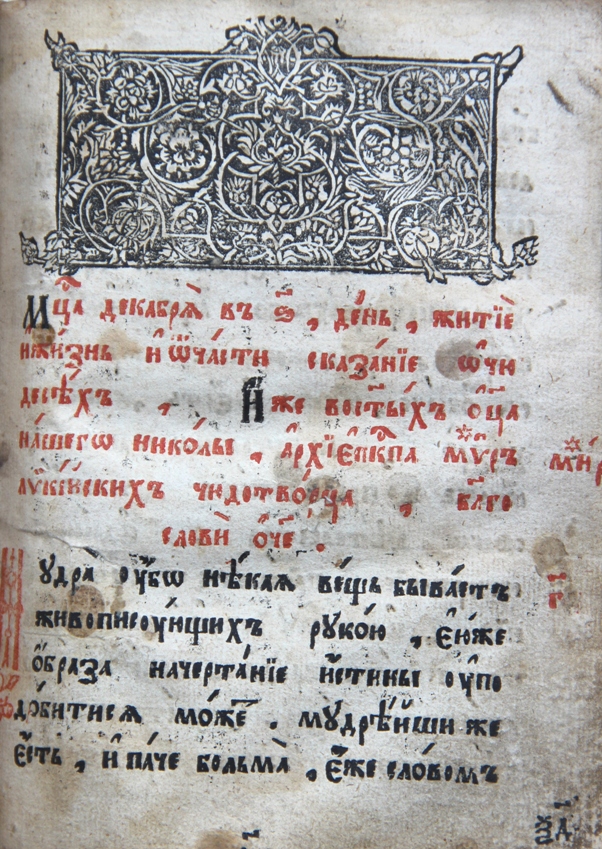 Мцⷭ҇а декабрѧ̀ въ ѕ҃, де́нь, житїѐ
и҆жи́знь и҆ ѿча́сти сказа́нїе ѡ҆чю
десѣ́хъ, И҆́же вост҃ы́хъ ѻ҆ц҃а
на́шегѡ нико́лы, а҆рхїепⷭ҇кпа мѵ́ръ
лѷкі́искихъ чюдотво́рца, бл҃го
словѝ ѻ҆́ч҃е.
ꙋдра ᲂу҆́бѡ нѣ́каѧ ве́щь быва́етъ
живописꙋ́ющихъ рꙋко́ю, є҆ю́же
ѻ҆́браза начерта́нїе и҆́стины ᲂу҆по
до́битисѧ мо́жеⷮ. мꙋдрѣ́йши же
є҆́сть, и҆ па́че вельмѝ, є҆́же сло́вомъ